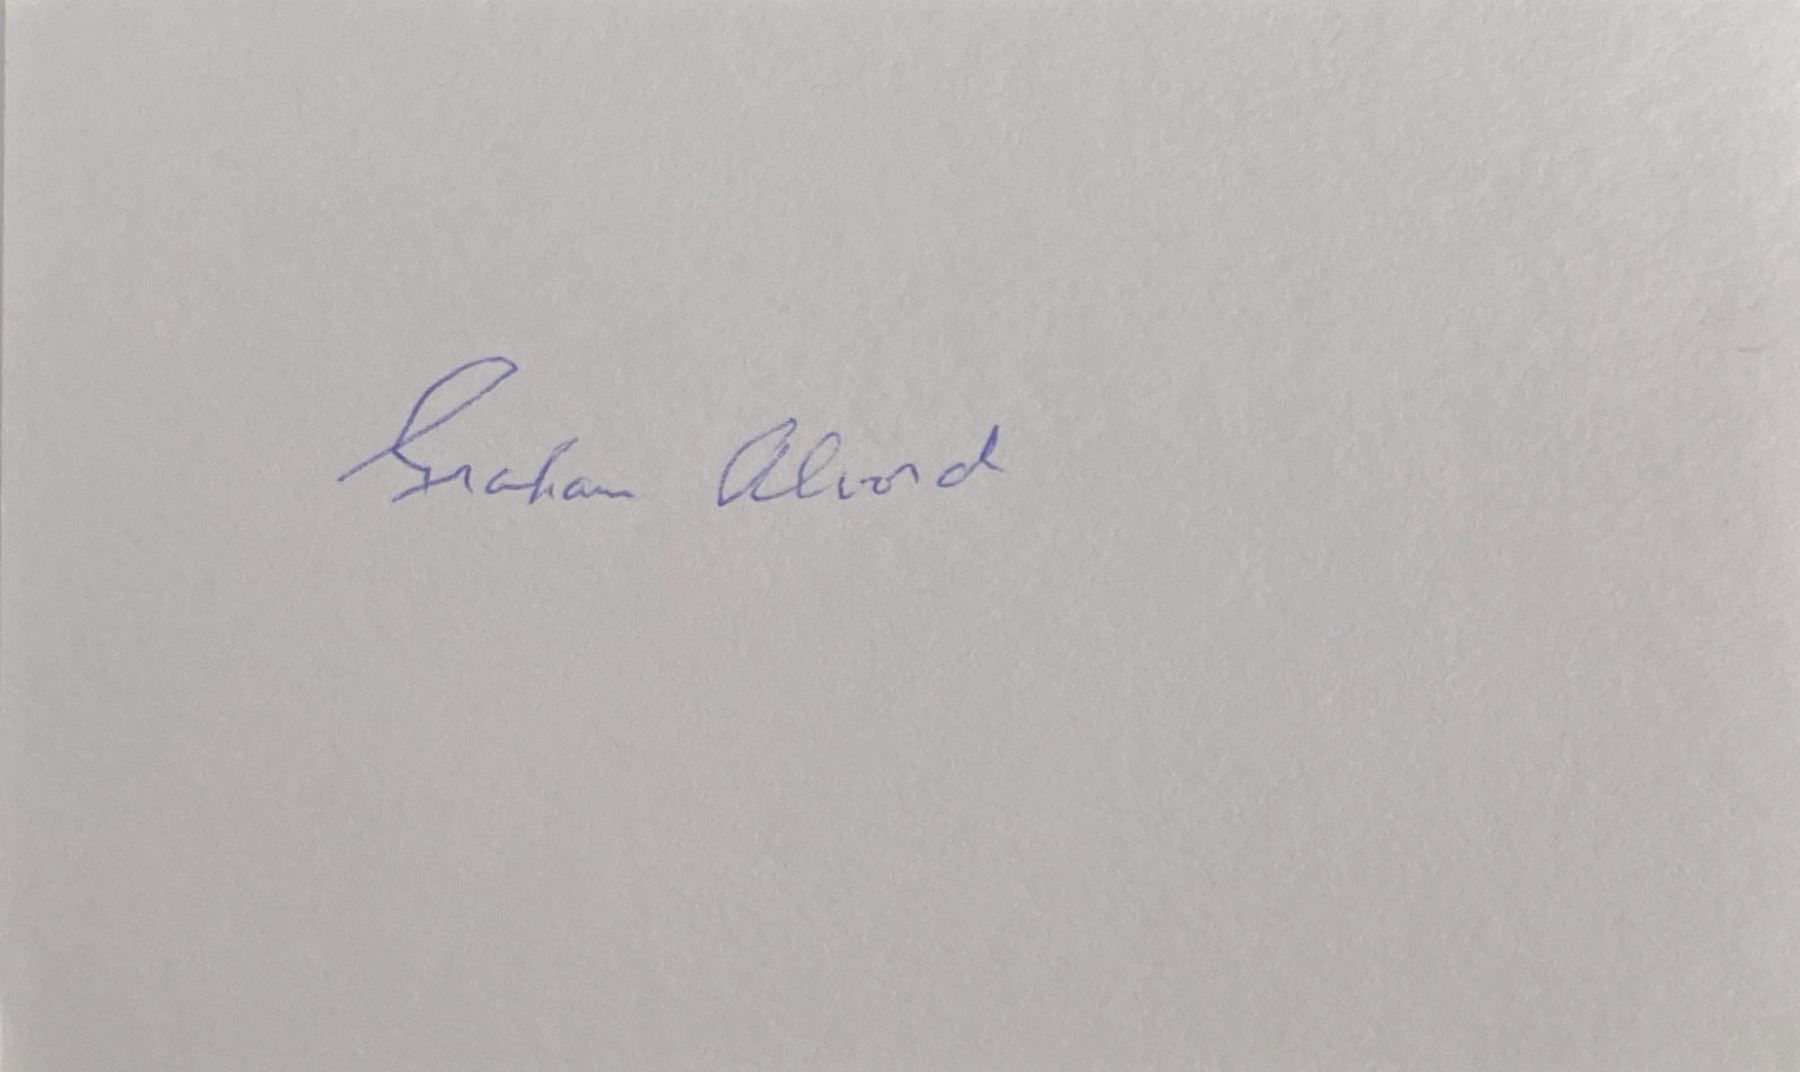 Graham Alvord